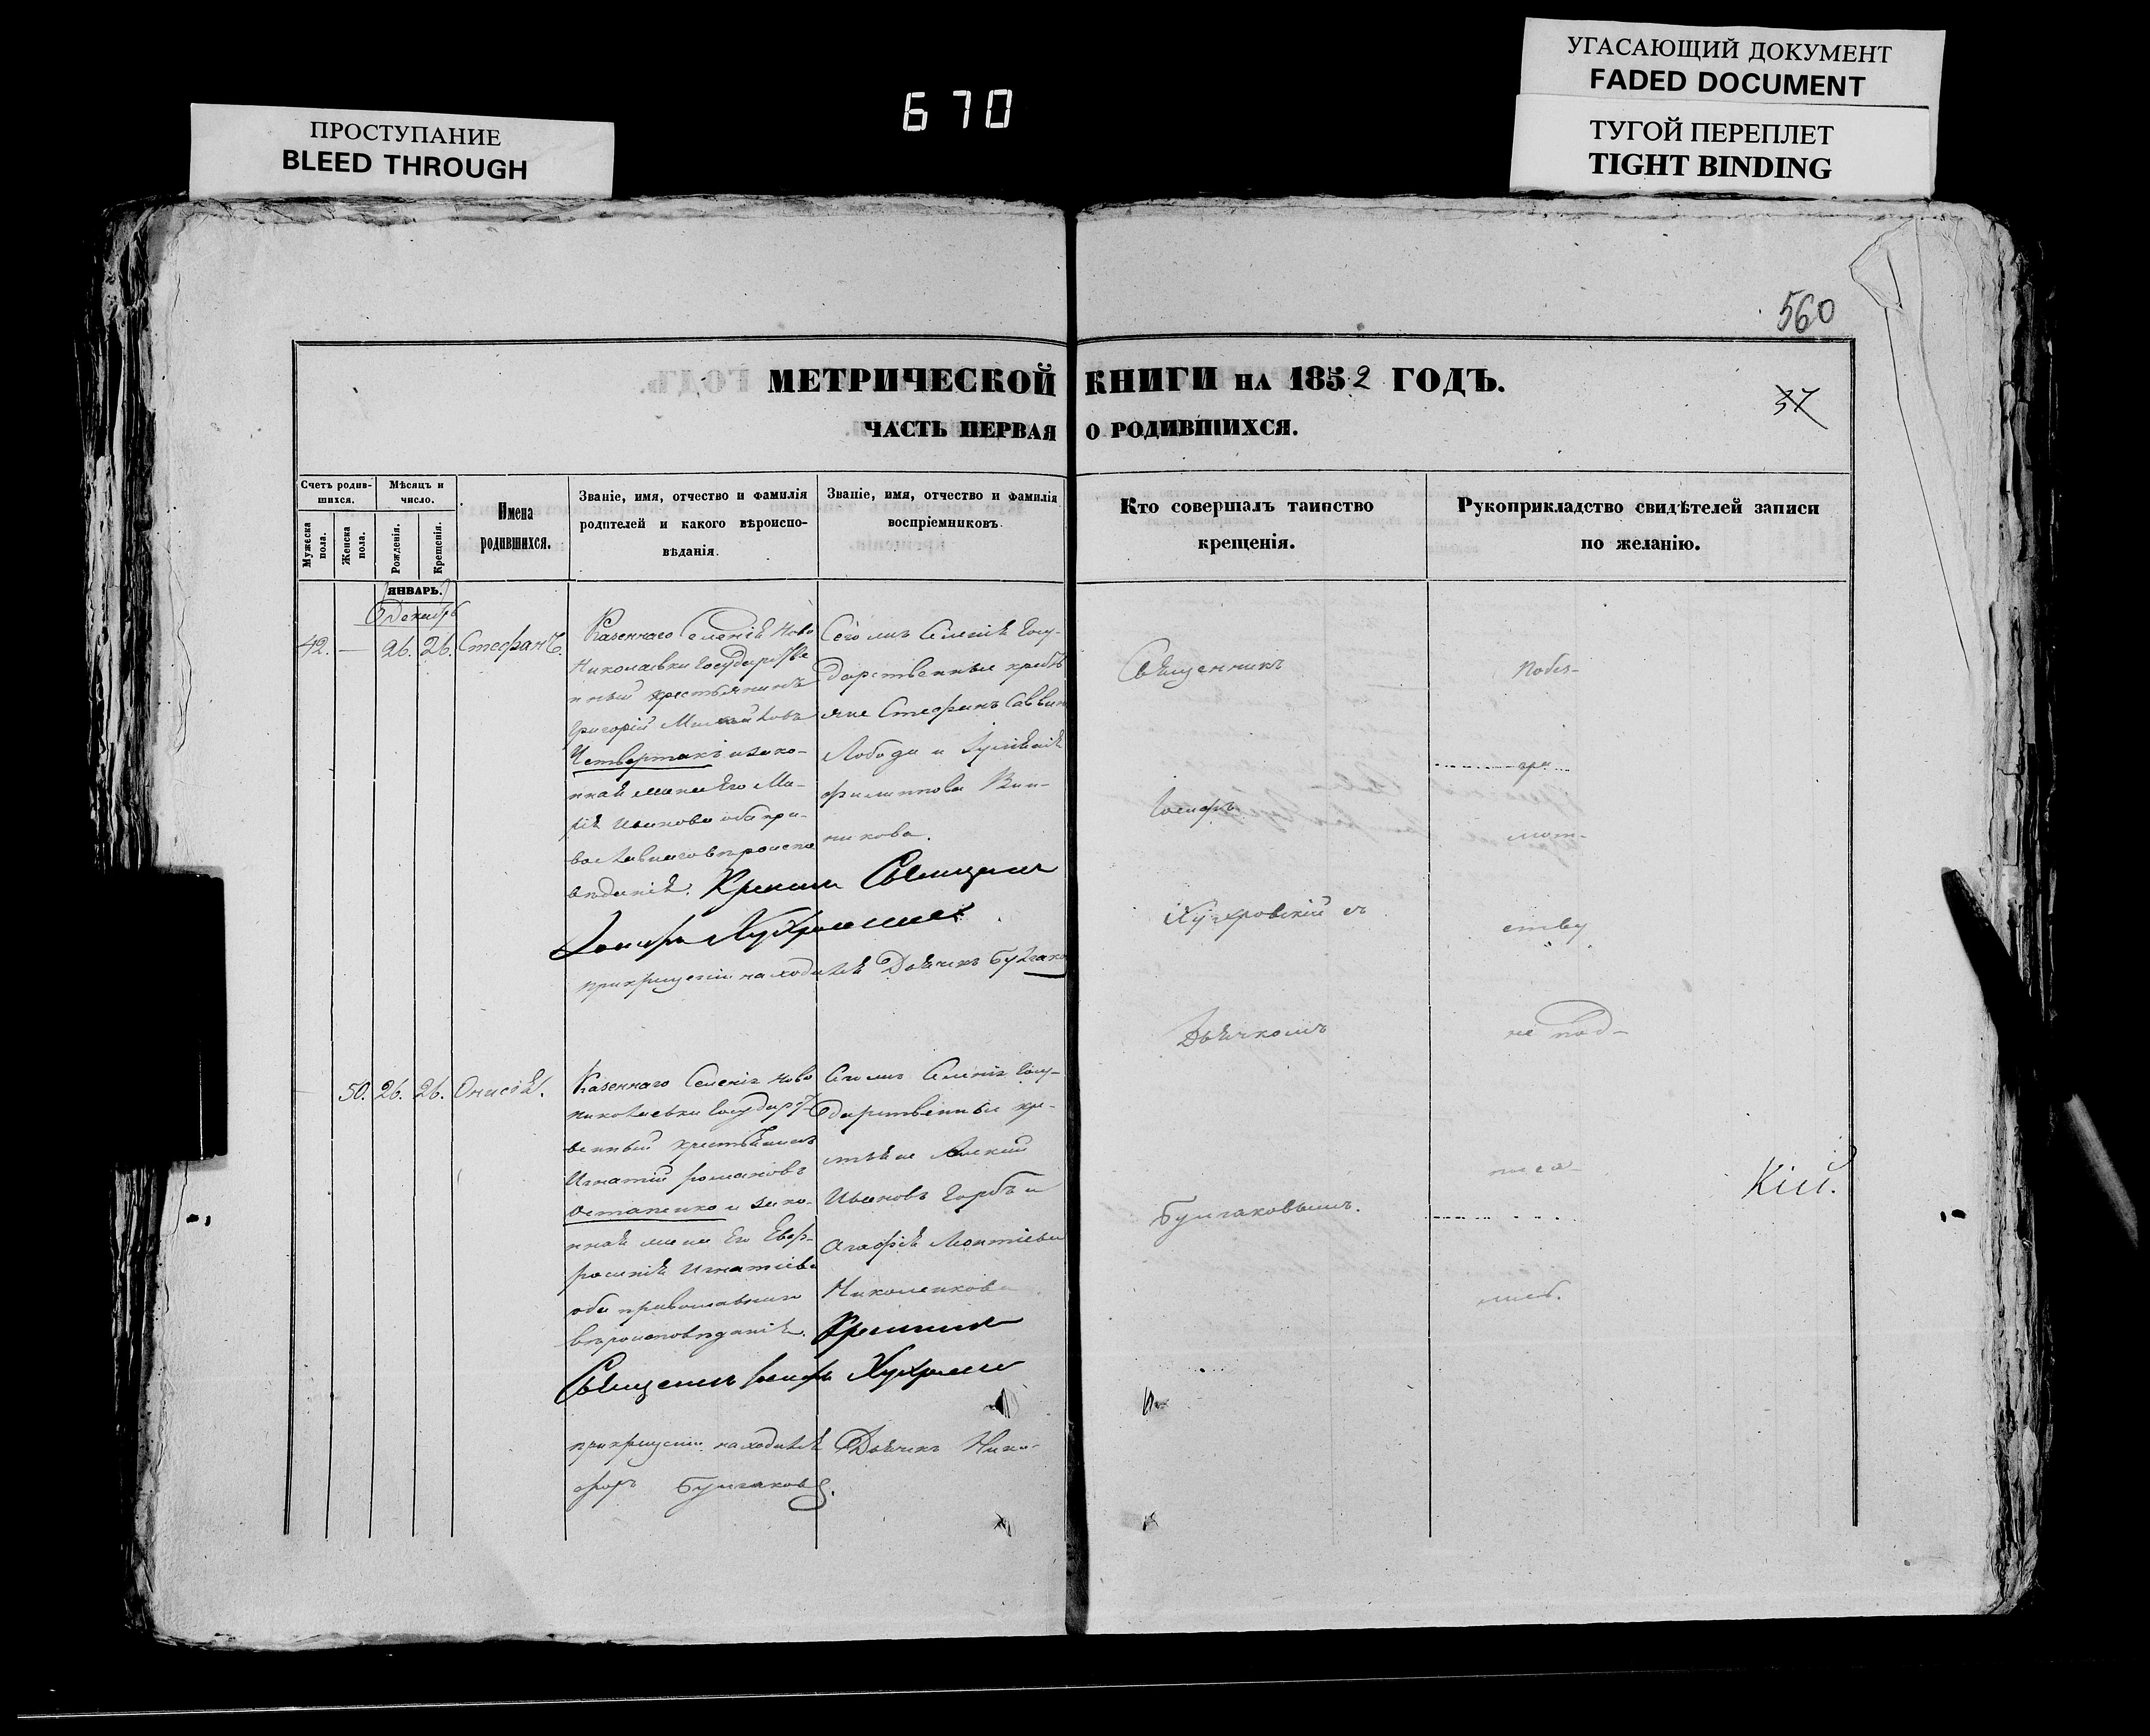 УГАСАЮЩИЙ ДОКУМЕНТ
FADED DOCUMENT
ТУГОЙ ПЕРЕПЛЕТ
TIGHT BINDING
670
ПРОСТУПАНИЕ
BLEED THROUGH
560
МЕТРИЧЕСКОЙ КНИГИ НА 1852 ГОДЪ.
37
ЧАСТЬ ПЕРВАЯ О РОДИВШИХСЯ.
Счетъ родив-
шихся.
Мѣсяцъ и
число.
Мужеска
пола.
Женска
пола.
Рожденія.
Крещенія.
Имена
родившихся.
Званіе, имя, отчество и фамилія
родителей и какого вѣроиспо-
вѣданія.
Званіе, имя, отчество и фамилія
воспріемниковъ.
Кто совершалъ таинство
крещенія.
Рукоприкладство свидѣтелей записи
по желанію.
ЯНВАРЬ.
Декабр
42. — 26. 26. Стефанъ.
Казеннаго Селенія Ново
Николаевки Государстве
нный крестьянинъ
Григорій Михайловъ
Четвертакъ и зако-
нная жена Его Ма-
рія Иванова оба пра-
вославнаго вѣроиспо
вѣданія. Крестилъ Священникъ
Іосифъ
при крещеніи находился Дьячекъ Булгаков
Сего жъ Селенія Госу-
дарственные кресть
яне Стефанъ Саввин
Лобода и
Филиппова Вин-
никова.
Священникъ
Іосифъ
съ
Дьячкомъ
Булгаковымъ.
Побез-
гра
мот-
ству
не под-
писа-
лись.
Кій.
50. 26. 26. Онисія.
Казеннаго Селенія Ново
николаевки Государст
венный крестьянинъ
Игнатій Романовъ
Остапенко и зако-
нная жена Его Евф-
росинія Игнатіева
оба православнаго
вѣроисповѣданія. Крестилъ
Священникъ Іосифъ
при крещеніи находился Дьячекъ Ники-
форъ Булгаковъ.
Сего жъ Селенія Госу-
дарственные кре-
стьяне Алексій
Ивановъ Горбъ и
Агафія Леонтіева
Николенкова.